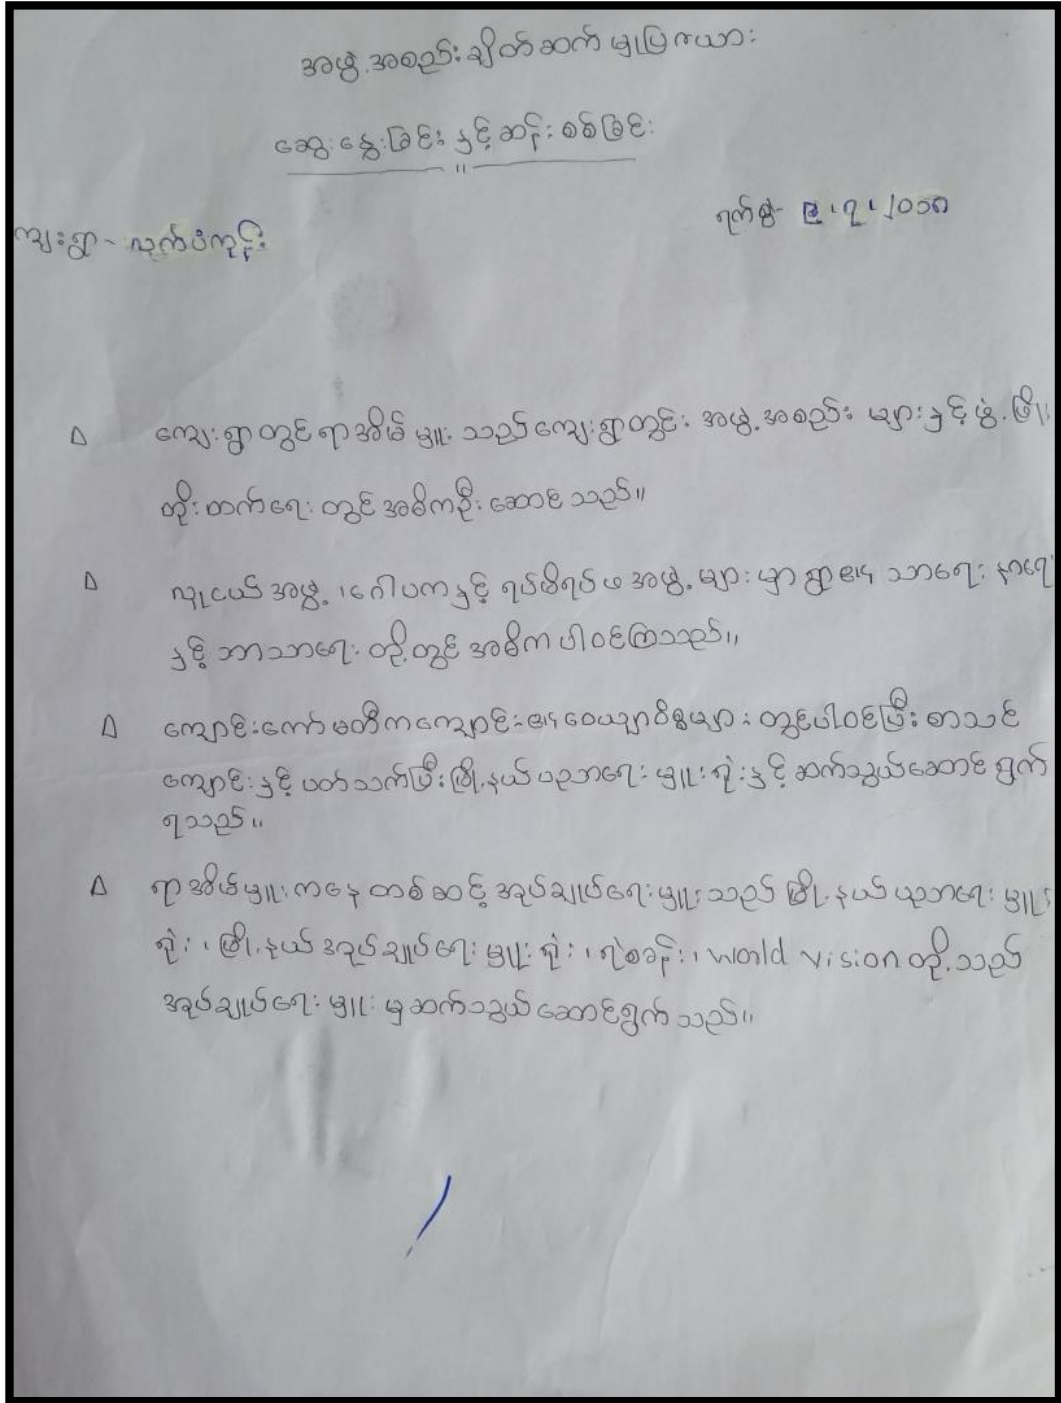 အဖွဲ့အစည်းချိတ်ဆက်မှုပြဇယား
ဆွေးနွေးခြင်းနှင့်ဆန်းစစ်ခြင်း
ရက်စွဲ- ၂၀၁၈
ကျေးရွာ-
ကျေးရွာတွင်ရာအိမ်မှူးသည်ကျေးရွာတွင်း အဖွဲ့အစည်းများနှင့်ဖွံ့ဖြိုး
တိုးတက်ရေးတွင်အဓိကဦးဆောင်သည်။
လူငယ်အဖွဲ့၊ ဂေါပကနှင့် ရပ်မိရပ်ဖအဖွဲ့များမှာရွာ၏ သာရေး နာရေး
နှင့်ဘာသာရေးတို့တွင် အဓိကပါဝင်ကြသည်။
ကျောင်းကော်မတီကကျောင်း၏ဝေယျာဝိစ္စများတွင်ပါဝင်ပြီးစာသင်
ကျောင်းနှင့်ပတ်သက်ပြီးမြို့နယ်ပညာရေးမှူးရုံးနှင့်ဆက်သွယ်ဆောင်ရွက်
ရသည်။
ရာအိမ်မှူးကနေတစ်ဆင့်အုပ်ချုပ်ရေးမှူးသည်မြို့နယ်ပညာရေးမှူး
ရုံး၊ မြို့နယ်အုပ်ချုပ်ရေးမှူးရုံး၊ ရဲစခန်း၊ World Vision တို့သည်
အုပ်ချုပ်ရေးမှူးမှဆက်သွယ်ဆောင်ရွက်သည်။